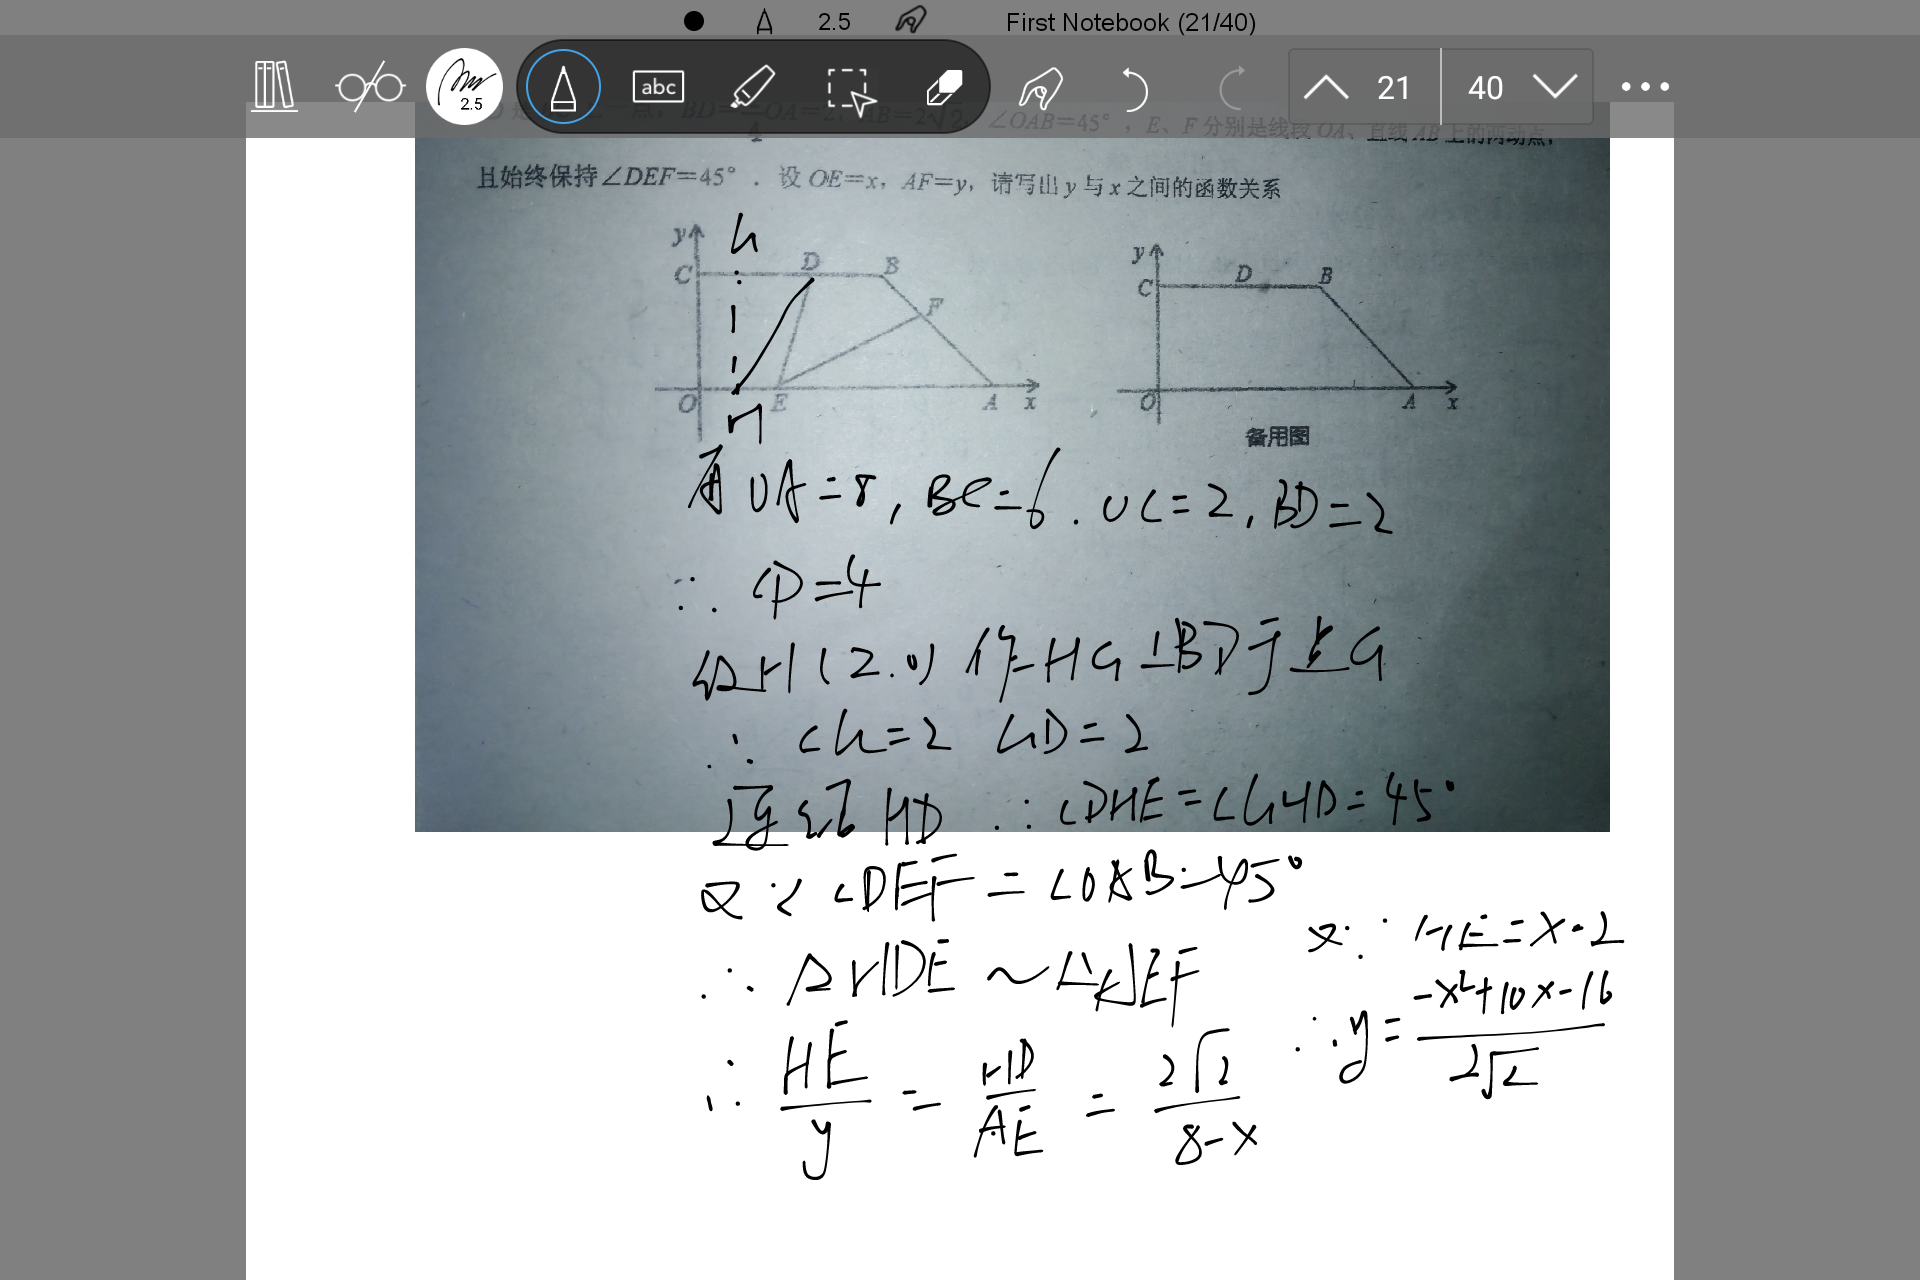 2.5 First Notebook (21/40)
2.5 abc 21 40
BD= OA=2, AB=2√2, ∠OAB=45°, E、F分别是线段OA、直线AB上的两动点,
4
且始终保持∠DEF=45°. 设OE=x, AF=y, 请写出y与x之间的函数关系
y G
C D B
F
O H E A x
y
C D B
O A x
备用图
OA=8, BC=6. OC=2, BD=2
∴ CD=4
H(2.0) 作HG⊥BD于点G
∴ CG=2 GD=2
连结HD ∴ ∠DHE=∠GHD=45°
又∵ ∠DEF=∠OAB=45°
∴ △HDE~△AEF
∴ HE/y = HD/AE = 2√2/8-x
又∵ HE=x-2
∴ y= -x²+10x-16/2√2